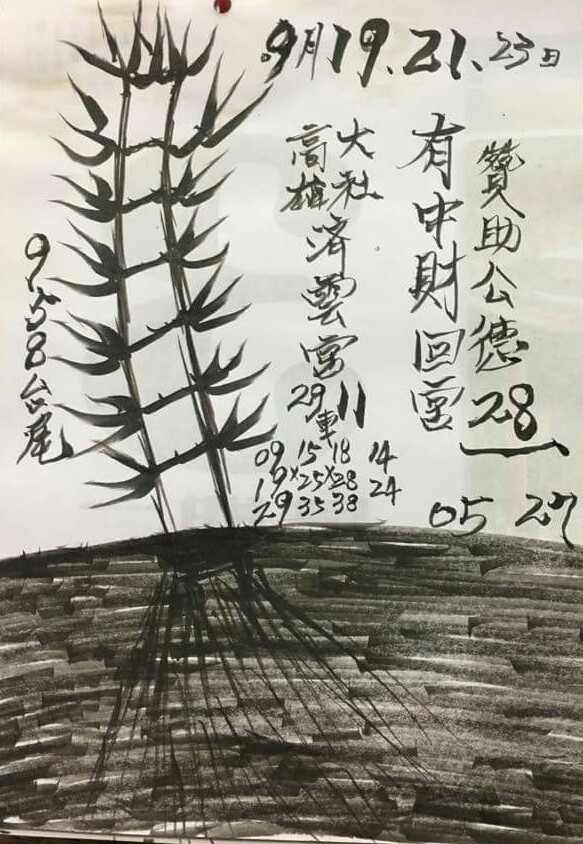 9月19.21.23日
贊助公德28
有中財回宮
05 27
大社
高雄
济雲宮
29車11
09 15 18 14
19×25×28 24
29 35 38
958台尾